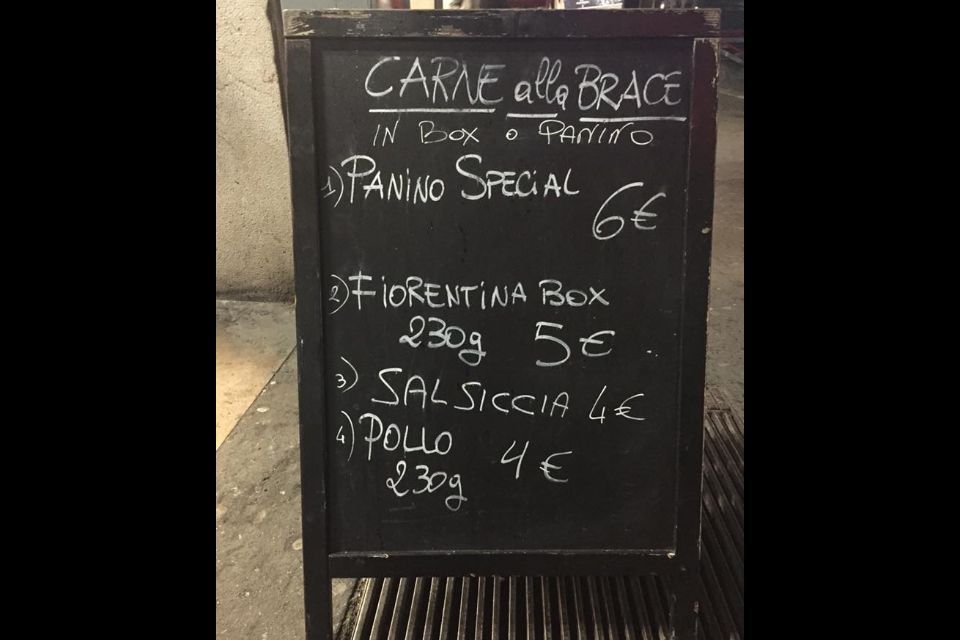 CARNE alla BRACE
IN BOX o PANINO
1) PANINO SPECIAL
6€
2) FIORENTINA BOX
230g 5€
3) SALSICCIA 4€
4) POLLO 4€
230g